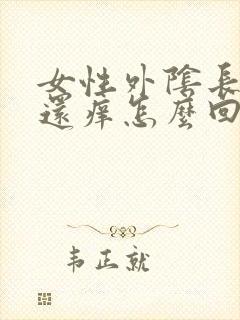 女性外陰長
還癢怎麼回
韦正就